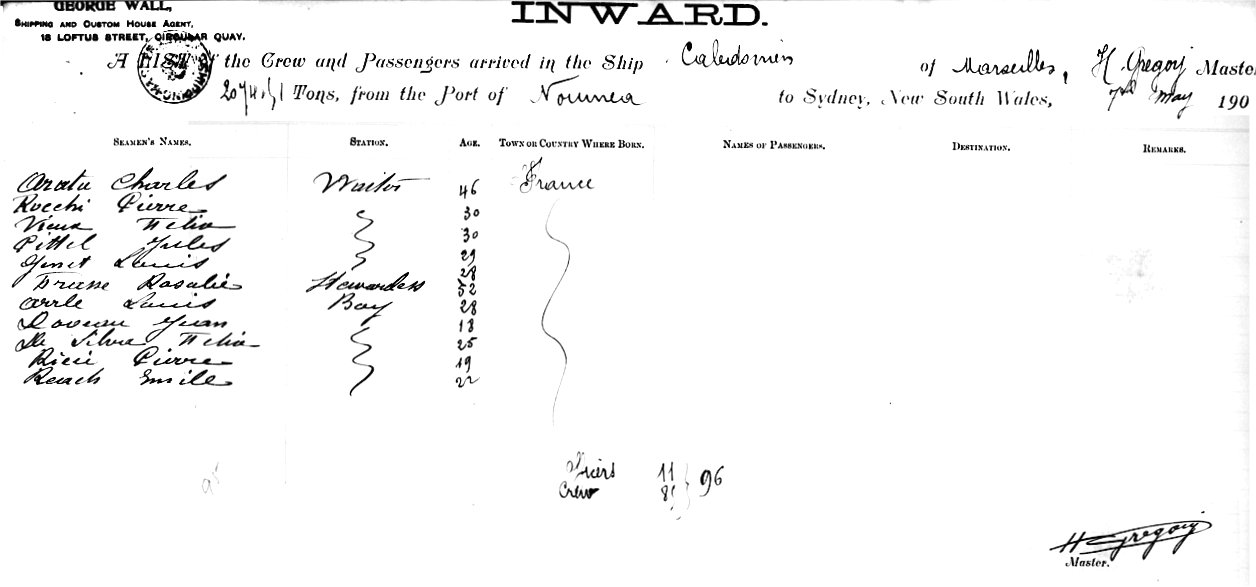 GEORGE WALL,
SHIPPING AND CUSTOM HOUSE AGENT,
18 LOFTUS STREET, CIRCULAR QUAY.
INWARD.
A LIST of the Crew and Passengers arrived in the Ship Caledonien of Marseilles, H Gregorj Master
Tons, from the Port of Noumea to Sydney, New South Wales, 7th May 190
SEAMEN'S NAMES. STATION. AGE. TOWN OR COUNTRY WHERE BORN. NAMES OF PASSENGERS. DESTINATION. REMARKS.
Charles Waiter 46 France
Rocchi Pierre 30
Vieux Felix 30
Pittel Jules 29
Louis 28
Rosalie Stewardess 52
Louis Boy 28
18
De Silva Felix 25
Ricci Pierre 19
Emile 22
11
Crew 96
H Gregorj
Master.